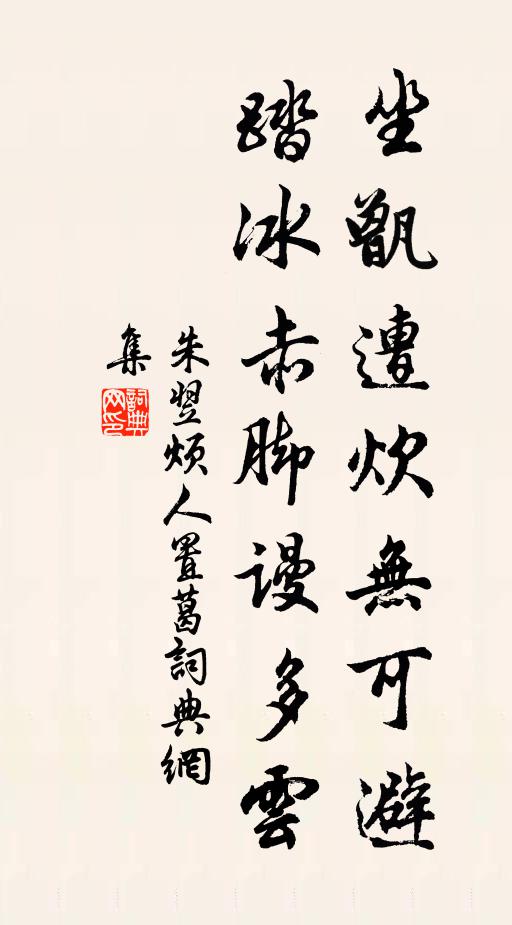 坐甑遭炊無可避
踏冰赤脚謾多雲
朱翌煩人置葛詞典網
集
詞典網印